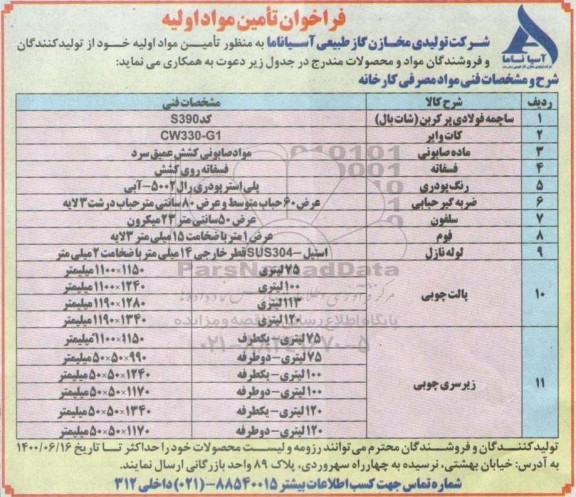 فراخوان تأمین مواد اولیه
آسیا ناما
شرکت تولیدی مخازن گاز طبیعی آسیاناما به منظور تأمین مواد اولیه خود از تولیدکنندگان
و فروشندگان مواد و محصولات مندرج در جدول زیر دعوت به همکاری می نماید:
شرح و مشخصات فنی مواد مصرفی کارخانه
ردیف شرح کالا مشخصات فنی
۱ ساچمه فولادی پر کربن (شات بال) کد S390
۲ کات وایر CW330-G1
۳ ماده صابونی مواد صابونی کشش عمیق سرد
۴ فسفاته فسفاته روی کشش
۵ رنگ پودری پلی استر پودری رال ۵۰۰۲-آبی
۶ ضربه گیر حبابی عرض ۶۰ حباب متوسط و عرض ۸۰ سانتی متر حباب درشت ۳ لایه
۷ سلفون عرض ۵۰ سانتی متر ۲۳ میکرون
۸ فوم عرض ۱ متر با ضخامت ۱۵ میلی متر ۳ لایه
۹ لوله نازل استیل -SUS304 قطر خارجی ۱۴ میلی متر با ضخامت ۲ میلی متر
۱۰ پالت چوبی ۷۵ لیتری ۱۱۵۰×۱۱۰۰ میلیمتر
۱۰۰ لیتری ۱۲۴۰×۱۱۰۰ میلیمتر
۱۱۳ لیتری ۱۲۸۰×۱۱۹۰ میلیمتر
۱۲۰ لیتری ۱۳۴۰×۱۱۹۰ میلیمتر
۱۱ زیرسری چوبی ۷۵ لیتری - یکطرفه ۱۱۵۰×۱۱۰۰ میلیمتر
۷۵ لیتری - دوطرفه ۹۹۰×۵۰×۵۰ میلیمتر
۱۰۰ لیتری - یکطرفه ۱۲۴۰×۵۰×۵۰ میلیمتر
۱۰۰ لیتری - دوطرفه ۱۱۷۰×۵۰×۵۰ میلیمتر
۱۲۰ لیتری - یکطرفه ۱۳۴۰×۵۰×۵۰ میلیمتر
۱۲۰ لیتری - دوطرفه ۱۱۷۰×۵۰×۵۰ میلیمتر
ParsNamadData
تولیدکنندگان و فروشندگان محترم می توانند رزومه و لیست محصولات خود را حداکثر تا تاریخ ۱۴۰۰/۰۶/۱۶
به آدرس: خیابان بهشتی، نرسیده به چهارراه سهروردی، پلاک ۸۹ واحد بازرگانی ارسال نمایند.
شماره تماس جهت کسب اطلاعات بیشتر ۸۸۵۴۰۰۱۵-(۰۲۱) داخلی ۳۱۲